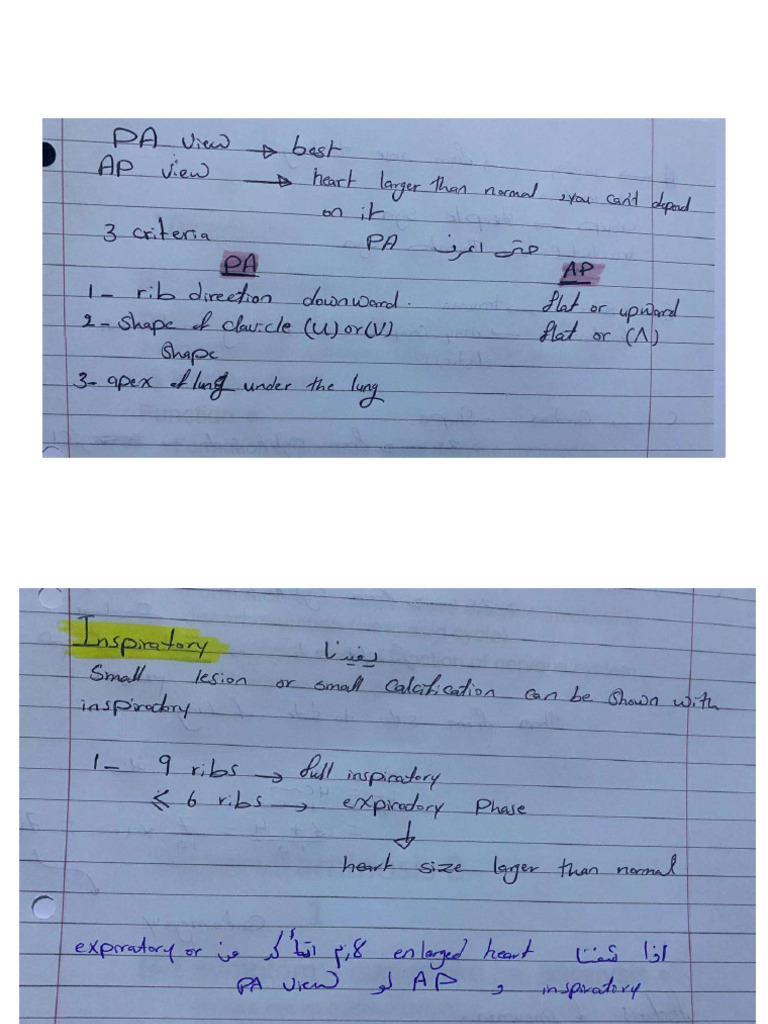 PA view → best
AP view → heart larger than normal, you can't depend
on it
3 criteria حتى اعرف PA
PA AP
1- rib direction downward. flat or upward
2- Shape of clavicle (U) or (V) flat or (Λ)
Shape
3- apex of lung under the lung
Inspiratory يفيدنا
Small lesion or small calcification can be shown with
inspiratory
1- 9 ribs → full inspiratory
⩽ 6 ribs → expiratory phase
↓
heart size larger than normal
اذا شفنا enlarged heart لازم اتأكد من expiratory or
inspiratory و AP لو PA view